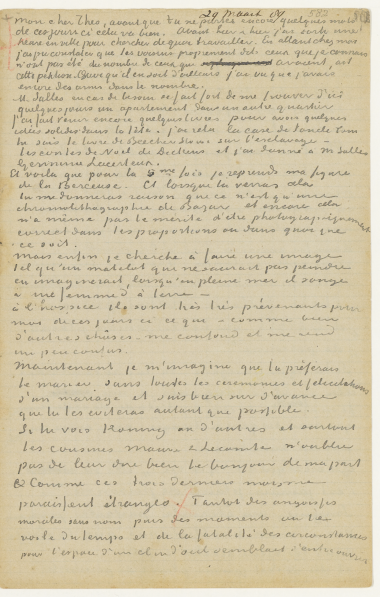 29 Maart 89 582
mon cher Theo, avant que tu ne partes encore quelques mots
de ces jours ci cela va bien. Avant hier & hier j'ai sorti une
heure en ville pour chercher de quoi travailler. En allant chez moi
j'ai pu constater que les voisins proprement dits, ceux que je connais
n'ont pas été du nombre de ceux qui avaient fait
cette pétition. Quoi qu'il en soit d'ailleurs j'ai vu que j'avais
encore des amis dans le nombre.
M. Salles en cas de besoin se fait fort de me trouver d'ici
quelques jours un apartement dans un autre quartier
J'ai fait venir encore quelques livres pour avoir quelques
idées solides dans la tête. J'ai relu la case de l'oncle Tom
tu sais le livre de Beecher Stowe sur l'esclavage –
les contes de Noel de Dickens et j'ai donné à M. Salles
Germinie Lacerteux.
Et voilà que pour la 5me fois je reprends ma figure
de la Berceuse. Et lorsque tu verras cela
tu me donneras raison que ce n'est qu'une
chromolithographie de Bazar et encore cela
n'a même pas le mérite d'être photographiquement
correct dans les proportions ou dans quoi que
ce soit.
Mais enfin je cherche à faire une image
tel qu'un matelot qui ne saurait pas peindre
en imaginerait lorsqu'en pleine mer il songe
à une femme d'à terre –
à l'hospice ils sont très très prévenants pour
moi de ces jours ci ce qui – comme bien
d'autres choses – me confond et me rend
un peu confus.
Maintenant je m'imagine que tu préférais
te marier sans toutes les ceremonies et felicitations
d'un mariage et suis bien sur d'avance
que tu les eviteras autant que possible.
Si tu vois Koning ou d'autres et surtout
les cousines Mauve & Lecomte n'oublie
pas de leur dire bien le bonjour de ma part
& Comme ces trois derniers mois me
paraissent étranges. Tantot des angoisses
morales sans nom puis des moments ou le
voile du temps et de la fatalité des circonstances
pour l'espace d'un clin d'oeil semblait s'entrouvrir